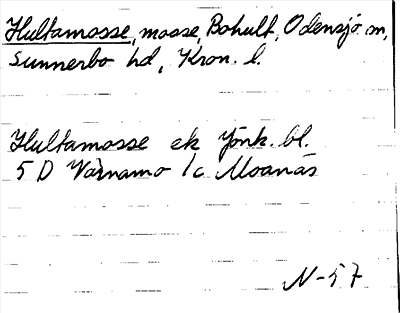 Hultamosse, mosse, Bohult, Odensjö sn,
Sunnerbo hd, Kron. l.
Hultamosse ek Jönk. bl.
5 D Värnamo 1c Moanäs
N-57